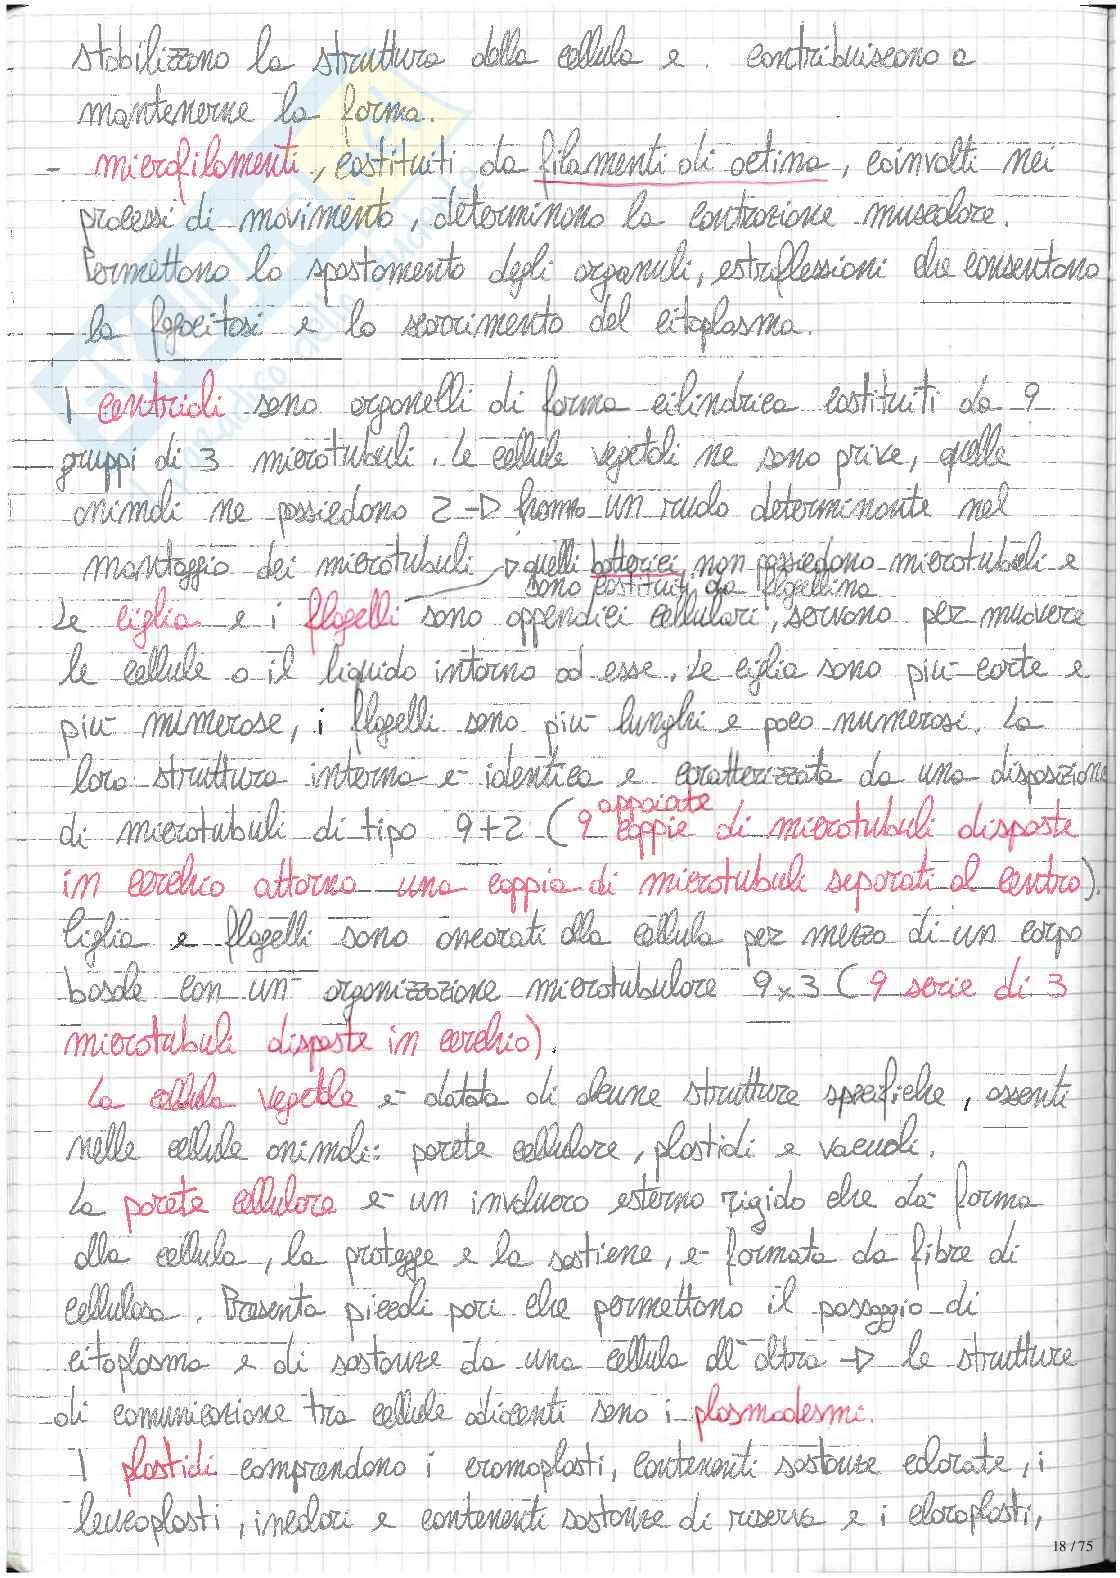 stabilizzano la struttura della cellula e. contribuiscono a
mantenerne la forma.
- microfilamenti, costituiti da filamenti di actina, coinvolti nei
processi di movimento, determinano la contrazione muscolare.
Permettono lo spostamento degli organuli, estroflessioni che consentono
la fagocitosi e lo scorrimento del citoplasma.
I centrioli sono organelli di forma cilindrica costituiti da 9
gruppi di 3 microtubuli. Le cellule vegetali ne sono prive, quelle
animali ne possiedono 2 -▷ hanno un ruolo determinante nel
montaggio dei microtubuli ▷ quelli batterici non possiedono microtubuli e
sono costituiti da flagellina
Le ciglia e i flagelli sono appendici cellulari, servono per muovere
le cellule o il liquido intorno ad esse. Le ciglia sono più corte e
più numerose, i flagelli sono più lunghi e poco numerosi. La
loro struttura interna è identica e caratterizzata da una disposizione
di microtubuli di tipo 9+2 (9 coppie di microtubuli disposte
appaiate
in cerchio attorno una coppia di microtubuli separati al centro).
Ciglia e flagelli sono ancorati alla cellula per mezzo di un corpo
basale con un' organizzazione microtubulare 9x3 (9 serie di 3
microtubuli disposte in cerchio).
La cellula vegetale è dotata di alcune strutture specifiche, assenti
nelle cellule animali: parete cellulare, plastidi e vacuoli.
La parete cellulare è un involucro esterno rigido che dà forma
alla cellula, la protegge e la sostiene, è formata da fibre di
cellulosa. Presenta piccoli pori che permettono il passaggio di
citoplasma e di sostanze da una cellula all'altra -▷ le strutture
di comunicazione tra cellule adiacenti sono i plasmodesmi.
I plastidi comprendono i cromoplasti, contenenti sostanze colorate, i
leucoplasti, incolori e contenenti sostanze di riserva e i cloroplasti,
18 / 75